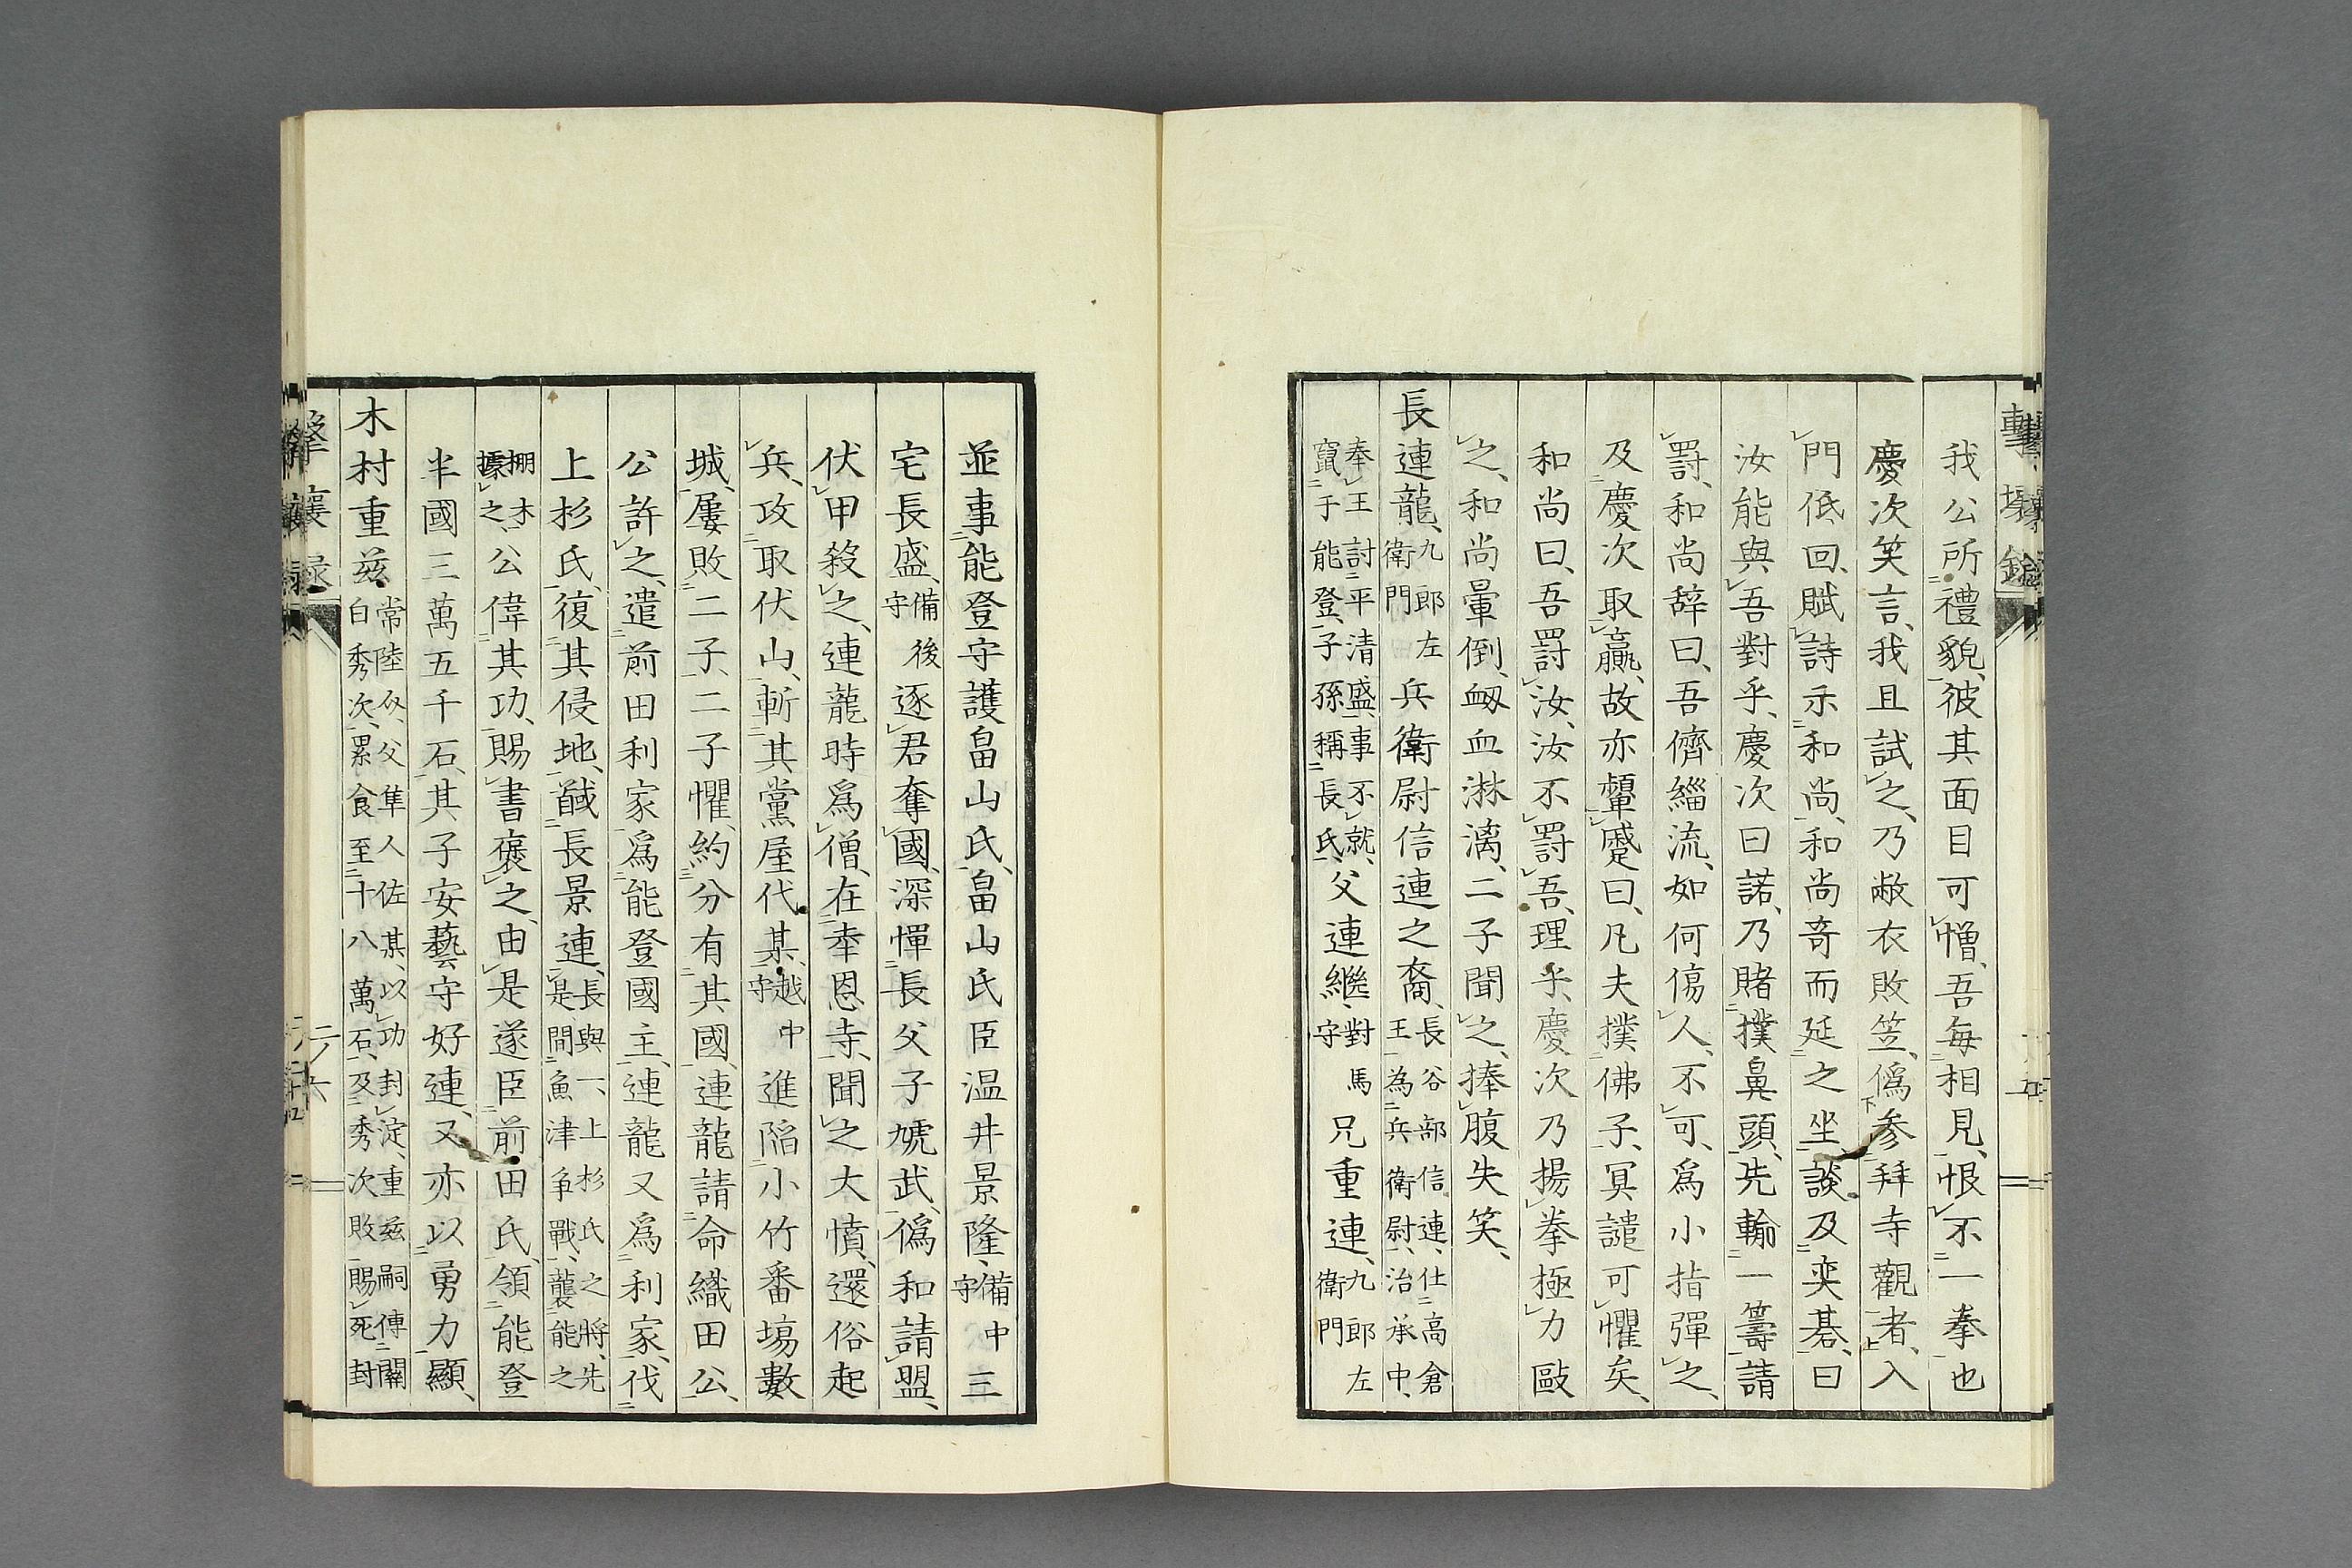 我公所禮貌、彼其面目可憎、吾毎相見、恨不一拳也
慶次笑言、我且試之、乃敝衣敗笠、僞参拜寺觀者、入
門低回、賦詩示和尚、和尚竒而延之坐、談及奕碁、曰
汝能與吾對乎、慶次曰諾、乃賭撲鼻頭、先輸一籌請
罸、和尚辞曰、吾儕緇流、如何傷人、不可、爲小指彈之、
及慶次取贏、故亦顰蹙曰、凡夫撲佛子、冥譴可懼矣、
和尚曰、吾罸汝、汝不罸吾、理乎、慶次乃揚拳極力毆
之、和尚暈倒、衂血淋漓、二子聞之、捧腹失笑、
長連龍、九郎左衛門兵衛尉信連之裔、長谷部信連、仕高倉王、為兵衛尉、治承中、
奉王討平清盛、事不就、竄于能登、子孫稱長氏、父連繼、對馬守兄重連、九郎左衛門
並事能登守護畠山氏、畠山氏臣温井景隆、備中守三
宅長盛、備後守逐君奪國、深憚長父子虓武、僞和請盟、
伏甲殺之、連龍時爲僧、在奉恩寺、聞之大憤、還俗起
兵、攻取伏山、斬其黨屋代某、越中守進陷小竹番塲數
城、屢敗二子、二子懼、約分有其國、連龍請命織田公、
公許之、遣前田利家爲能登國主、連龍又爲利家、伐
上杉氏、復其侵地、馘長景連、長與一、上杉氏之將、先是間魚津争戰、襲能之
棚木據之、公偉其功、賜書褒之、由是遂臣前田氏、領能登
半國三萬五千石、其子安藝守好連、又亦以勇力顯、
木村重兹常陸介、父隼人佐某、以功封淀、重兹嗣傳關白秀次、累食至十八萬石、及秀次敗賜死封
擊壤錄
二ノ六